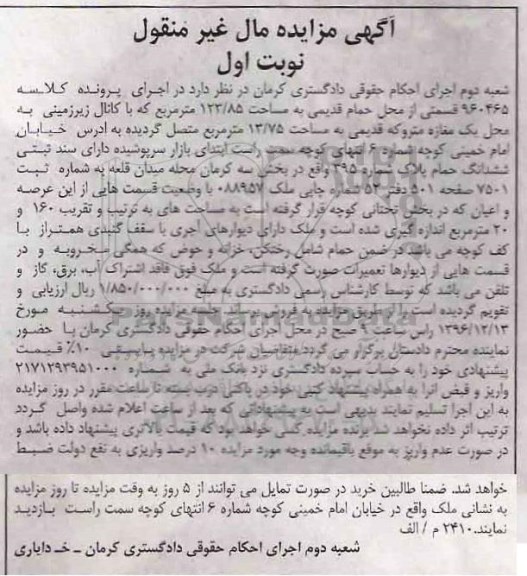 آگهی مزایده مال غیر منقول
نوبت اول
شعبه دوم اجرای احکام حقوقی دادگستری کرمان در نظر دارد در اجرای پرونده کلاسه
۹۶۰۴۶۵ قسمتی از محل حمام قدیمی به مساحت ۱۲۳/۸۵ مترمربع که با کانال زیرزمینی به
محل یک مغازه متروکه قدیمی به مساحت ۱۳/۷۵ مترمربع متصل گردیده به ادرس خیابان
امام خمینی کوچه شماره ۶ انتهای کوچه سمت راست ابتدای بازار سرپوشیده دارای سند ثبتی
ششدانگ حمام پلاک شماره ۳۹۵ واقع در بخش سه کرمان محله میدان قلعه به شماره ثبت
۷۵۰۱ صفحه ۵۰۱ دفتر ۵۲ شماره چاپی ملک ۰۸۸۹۵۷ با وضعیت قسمت هایی از این عرصه
و اعیان که در بخش تحتانی کوچه قرار گرفته است به مساحت های به ترتیب و تقریب ۱۶۰ و
۲۰ مترمربع اندازه گیری شده است و ملک دارای دیوارهای آجری با سقف گنبدی همتراز با
کف کوچه می باشد در ضمن حمام شامل رختکن، خزانه و حوض که همگی مخروبه و در
قسمت هایی از دیوارها تعمیرات صورت گرفته است و ملک فوق فاقد اشتراک آب، برق، گاز و
تلفن می باشد که توسط کارشناس رسمی دادگستری به مبلغ ۱/۸۵۰/۰۰۰/۰۰۰ ریال ارزیابی و
تقویم گردیده است را از طریق مزایده به فروش برساند جلسه مزایده روز یکشنبه مورخ
۱۳۹۶/۱۲/۱۳ راس ساعت ۹ صبح در محل اجرای احکام حقوقی دادگستری کرمان با حضور
نماینده محترم دادستان برگزار می گردد متقاضیان شرکت در مزایده بایستی ۱۰٪ قیمت
پیشنهادی خود را به حساب سپرده دادگستری نزد بانک ملی به شماره ۲۱۷۱۲۹۳۹۵۱۰۰۰
واریز و قبض انرا به همراه پیشنهاد کتبی خود در پاکتی درب بسته تا ساعت مقرر در روز مزایده
به این اجرا تسلیم نمایند بدیهی است به پیشنهاداتی که بعد از ساعت اعلام شده واصل گردد
ترتیب اثر داده نخواهد شد برنده مزایده کسی خواهد بود که قیمت بالاتری پیشنهاد داده باشد و
در صورت عدم واریز به موقع باقیمانده وجه مورد مزایده ۱۰ درصد واریزی به نفع دولت ضبط
خواهد شد. ضمنا طالبین خرید در صورت تمایل می توانند از ۵ روز به وقت مزایده تا روز مزایده
به نشانی ملک واقع در خیابان امام خمینی کوچه شماره ۶ انتهای کوچه سمت راست بازدید
نمایند.۲۴۱۰ م / الف
شعبه دوم اجرای احکام حقوقی دادگستری کرمان ــ خدایاری